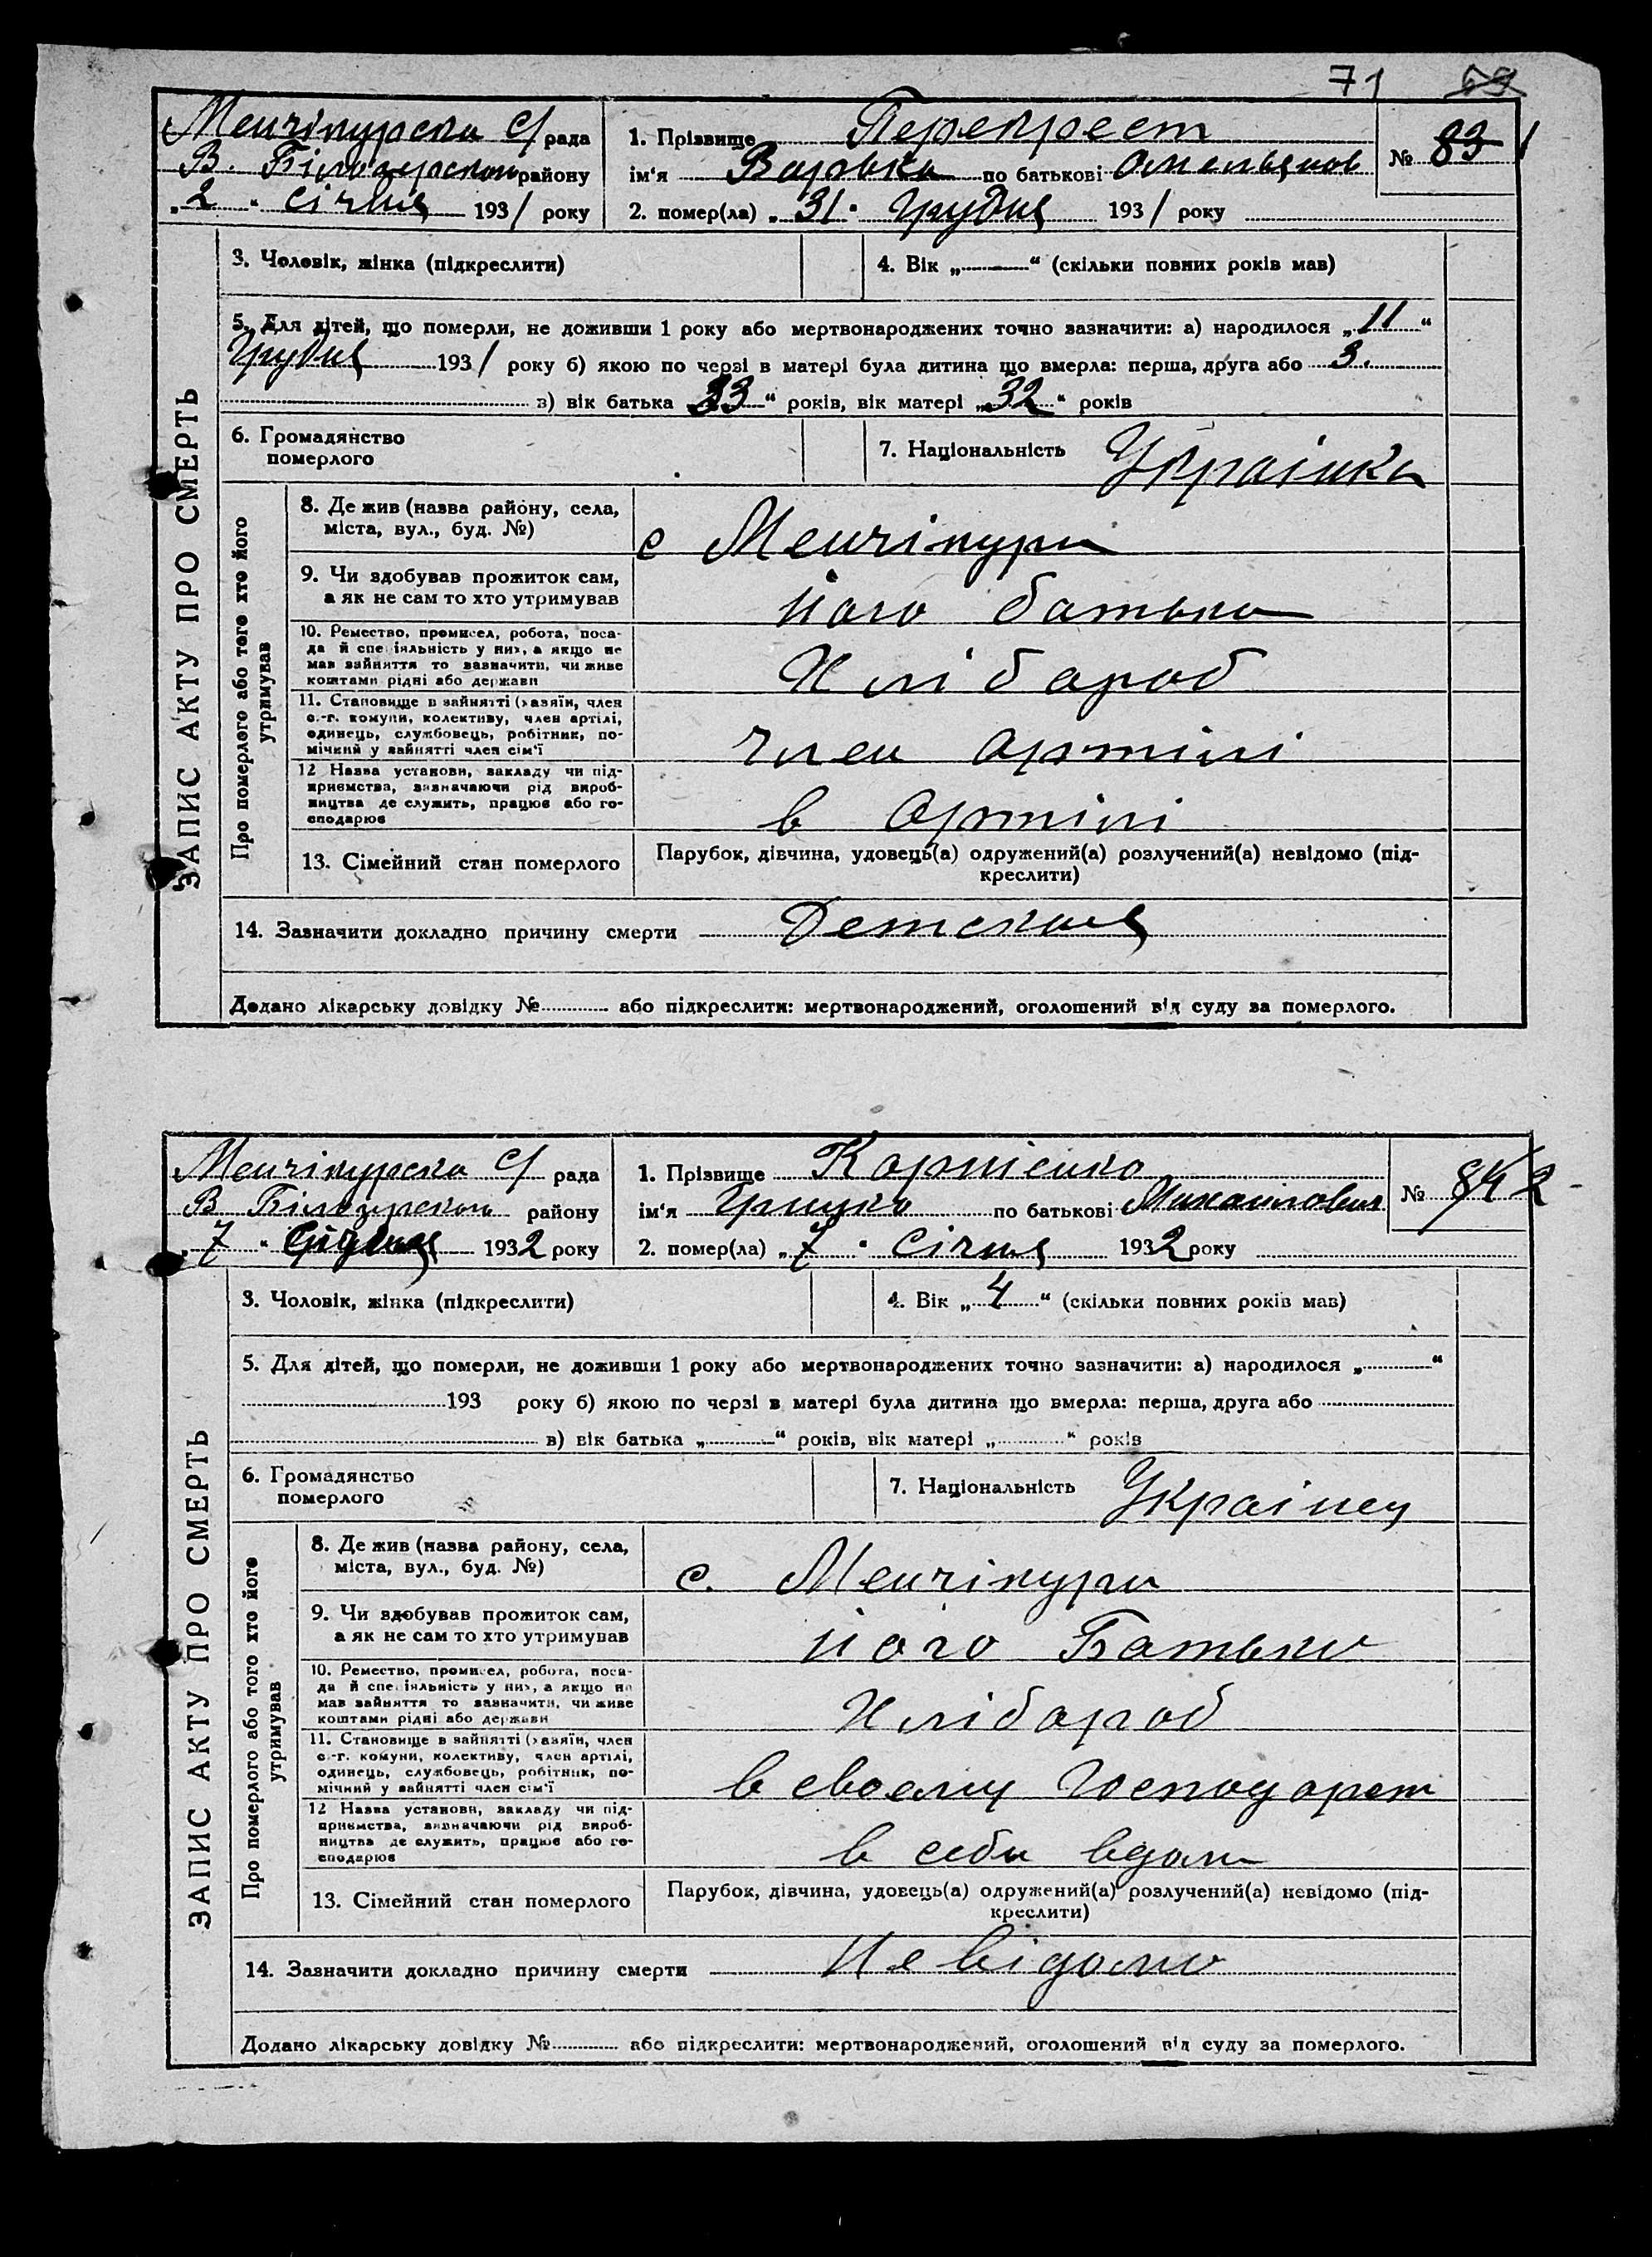 71 69
Менчікурска С/ рада
1. Прізвище Перекрест
№ 83 1
В. Білозерского району
ім'я Варька по батькові Омельянов
„2" Січня 1931 року
2. помер(ла) „31" Грудня 1931 року
ЗАПИС АКТУ ПРО СМЕРТЬ
3. Чоловік, жінка (підкреслити)
4. Вік „ " (скільки повних років мав)
5. Для дітей, що померли, не доживши 1 року або мертвонароджених точно зазначити: а) народилося „11"
Грудня 1931 року б) якою по черзі в матері була дитина що вмерла: перша, друга або 3.
в) вік батька 33" років, вік матері „32" років
6. Громадянство
померлого
7. Національність Українка
Про померлого або того хто його
утримував
8. Де жив (назва району, села,
міста, вул., буд. №)
с Менчікури
9. Чи здобував прожиток сам,
а як не сам то хто утримував
його батько
10. Ремество, промисел, робота, поса-
да й спеціяльність у них, а якщо не
мав зайняття то зазначити, чи живе
коштами рідні або держави
Хлібороб
11. Становище в зайнятті (хазяїн, член
с.-г. комуни, колективу, член артілі,
одинець, службовець, робітник, по-
мічний у зайнятті член сім'ї
член артілі
12 Назва установи, закладу чи під-
приємства, зазначаючи рід вироб-
ництва де служить, працює або го-
сподарює
в артілі
13. Сімейний стан померлого
Парубок, дівчина, удовець(а) одружений(а) розлучений(а) невідомо (під-
креслити)
14. Зазначити докладно причину смерти Детская
Додано лікарську довідку № або підкреслити: мертвонароджений, оголошений від суду за померлого.
Менчікурска С/ рада
1. Прізвище Корнієнко
№ 84 2
В Білозерского району
ім'я Грицко по батькові Михайлович
„7" Січня 1932 року
2. помер(ла) „7" Січня 1932 року
ЗАПИС АКТУ ПРО СМЕРТЬ
3. Чоловік, жінка (підкреслити)
4. Вік „4" (скільки повних років мав)
5. Для дітей, що померли, не доживши 1 року або мертвонароджених точно зазначити: а) народилося „ "
193 року б) якою по черзі в матері була дитина що вмерла: перша, друга або
в) вік батька „ " років, вік матері „ " років
6. Громадянство
померлого
7. Національність Українец
Про померлого або того хто його
утримував
8. Де жив (назва району, села,
міста, вул., буд. №)
с. Менчікури
9. Чи здобував прожиток сам,
а як не сам то хто утримував
його Батько
10. Ремество, промисел, робота, поса-
да й спеціяльність у них, а якщо не
мав зайняття то зазначити, чи живе
коштами рідні або держави
Хлібороб
11. Становище в зайнятті (хазяїн, член
с.-г. комуни, колективу, член артілі,
одинець, службовець, робітник, по-
мічний у зайнятті член сім'ї
в своему Господарст
12 Назва установи, закладу чи під-
приємства, зазначаючи рід вироб-
ництва де служить, працює або го-
сподарює
в себи вдома
13. Сімейний стан померлого
Парубок, дівчина, удовець(а) одружений(а) розлучений(а) невідомо (під-
креслити)
14. Зазначити докладно причину смерти Невідомо
Додано лікарську довідку № або підкреслити: мертвонароджений, оголошений від суду за померлого.